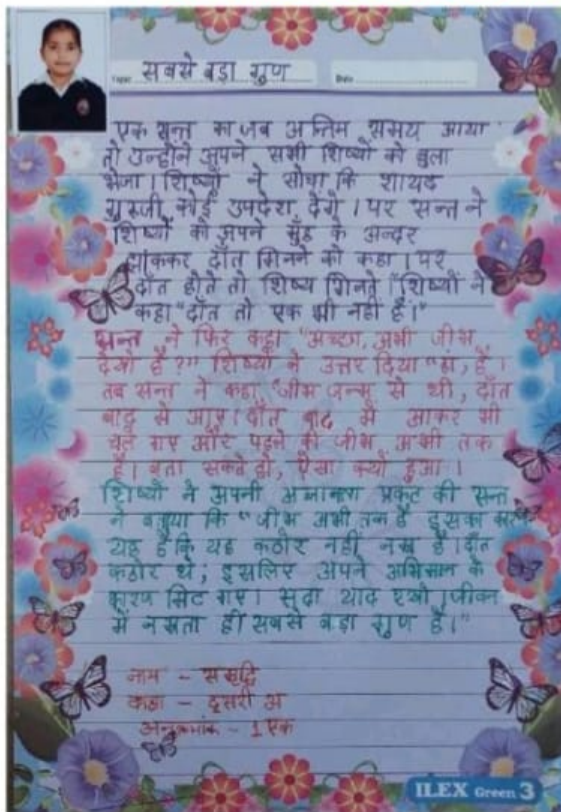 Topic सबसे बड़ा गुण Date
एक सन्त का जब अन्तिम समय आया
तो उन्होंने अपने सभी शिष्यों को बुला
भेजा। शिष्यों ने सोचा कि शायद
गुरूजी कोई उपदेश देंगे। पर सन्त ने
शिष्यों को अपने मुँह के अन्दर
झाँककर दाँत गिनने को कहा। पर
दाँत होते तो शिष्य गिनते। शिष्यों ने
कहा "दाँत तो एक भी नहीं है।"
सन्त ने फिर कहा "अच्छा, अभी जीभ
देखो है?" शिष्यों ने उत्तर दिया "हां, है।
तब सन्त ने कहा "जीभ जन्म से थी, दाँत
बाद में आए। दाँत बाद में आकर भी
चले गए और पहले की जीभ अभी तक
है। बता सकते हो, ऐसा क्यों हुआ।
शिष्यों ने अपनी प्रकट की सन्त
ने बताया कि "जीभ अभी तक है इसका
यह है कि यह कठोर नहीं नम्र है। दाँत
कठोर थे, इसलिए अपने अभिमान के
कारण मिट गए। सदा याद रखो। जीवन
में नम्रता ही सबसे बड़ा गुण है।"
नाम - समृद्धि
कक्षा - दूसरी अ
अनुक्रमांक - 1 एक
ILEX Green 3